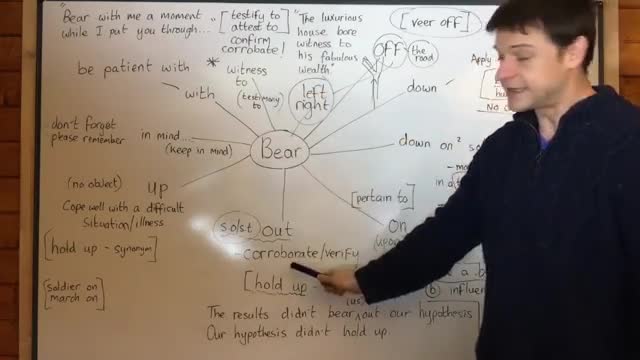 "Bear with me a moment
while I put you through..."
[testify to
attest to
confirm
corrobate!
"The luxurious
house bore
witness to
his fabulous
wealth.
[veer off]
off
the road
Apply
be patient with *
with
witness
to
(testimony
to)
left
right
down
No
don't forget
please remember
in mind...
(keep in mind)
Bear
down on²
(no object)
up
Cope well with a difficult
situation/illness
[hold up - synonym]
[soldier on
march on]
so/st out
- corroborate/verify
[hold up -
[pertain to]
on
(upon)
in a
a b
(b) influen
The results didn't bear ^ out our hypothesis
(us)
Our hypothesis didn't hold up.